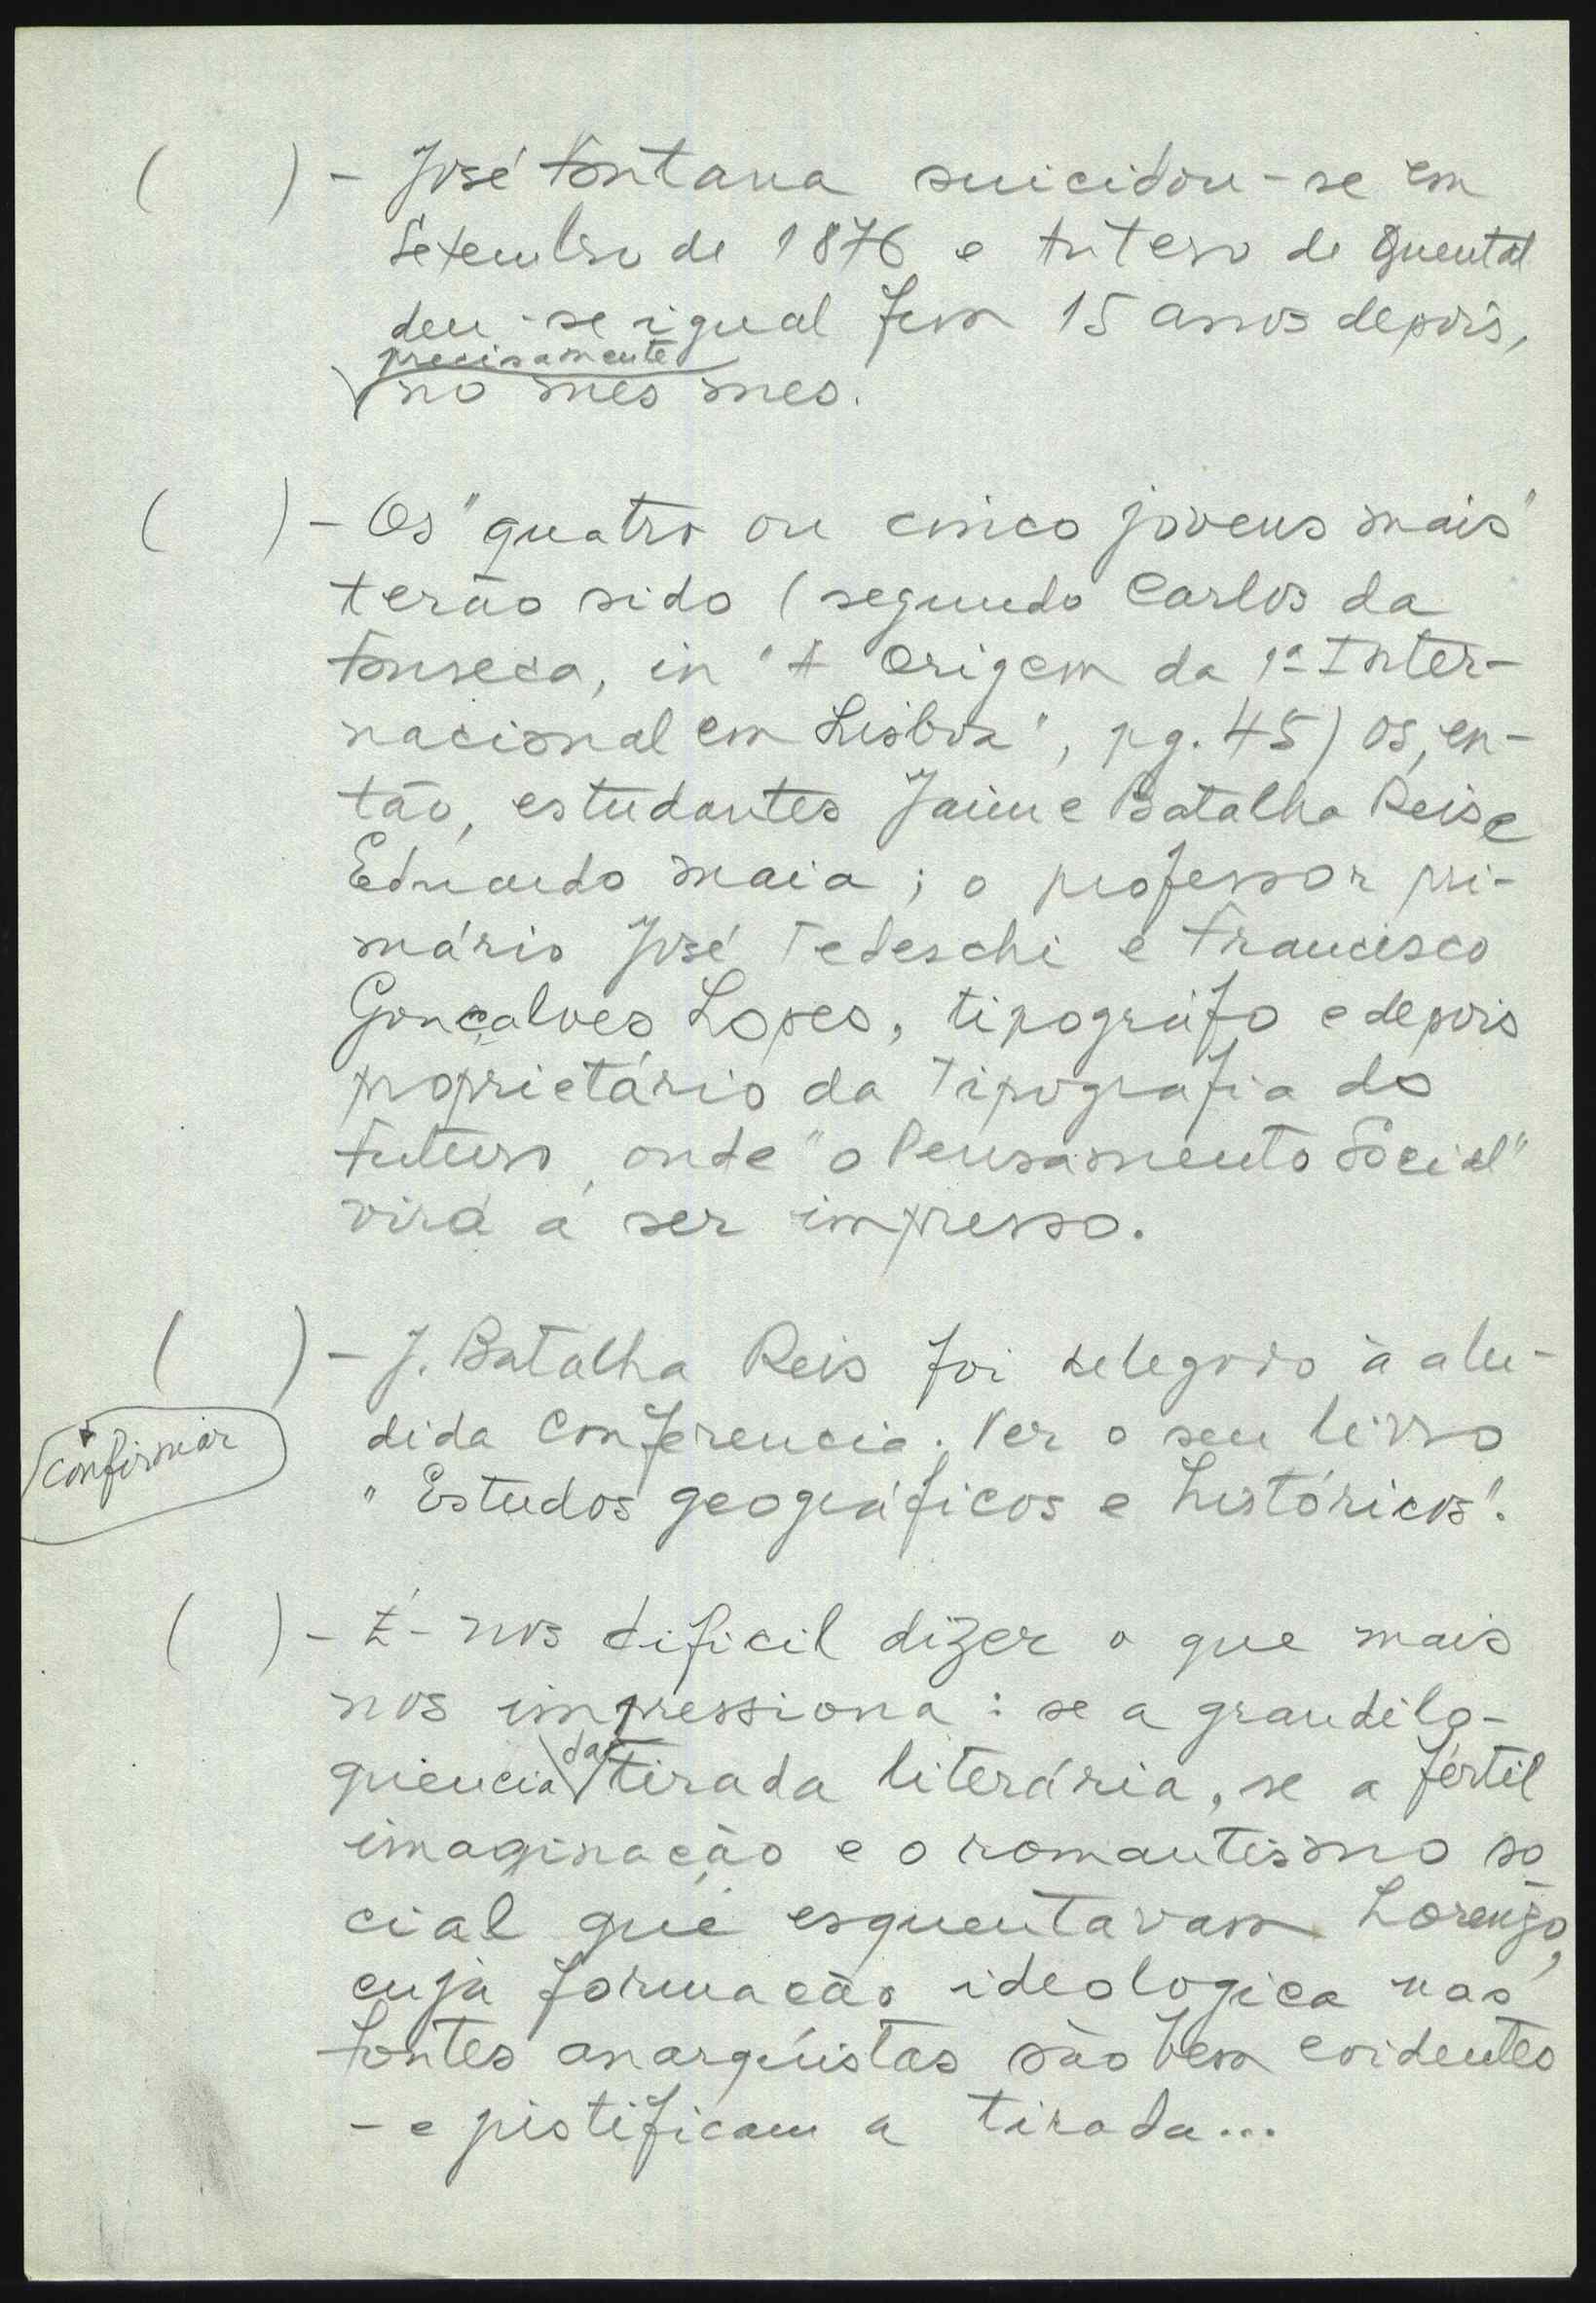 ( ) - José Fontana suicidou-se em
Setembro de 1876 e Antero de Quental
deu-se igual fim 15 anos depois,
precisamente
no mes mes.
( ) - Os "quatro ou cinco jovens mais"
terão sido (segundo Carlos da
Fonseca, in "A Origem da 1ª Inter-
nacional em Lisboa", pg. 45) os, en-
tão, estudantes Jaime Batalha Reis e
Eduardo Maia; o professor pri-
mário José Tedeschi e Francisco
Gonçalves Lopes, tipográfo e depois
proprietário da Tipografia do
Futuro, onde "o Pensamento Social"
virá a ser impresso.
( ) - J. Batalha Reis foi delegado à alu-
dida Conferencia. Ver o seu livro
confirmar
"Estudos geográficos e históricos".
( ) - É-nos dificil dizer o que mais
nos impressiona: se a grandilo-
da
quencia tirada literária, se a fértil
imaginação e o romantismo so
cial que esquentavam Lorenzo,
cuja formação ideologica nas
fontes anarquistas são bem evidentes
- e justificam a tirada...